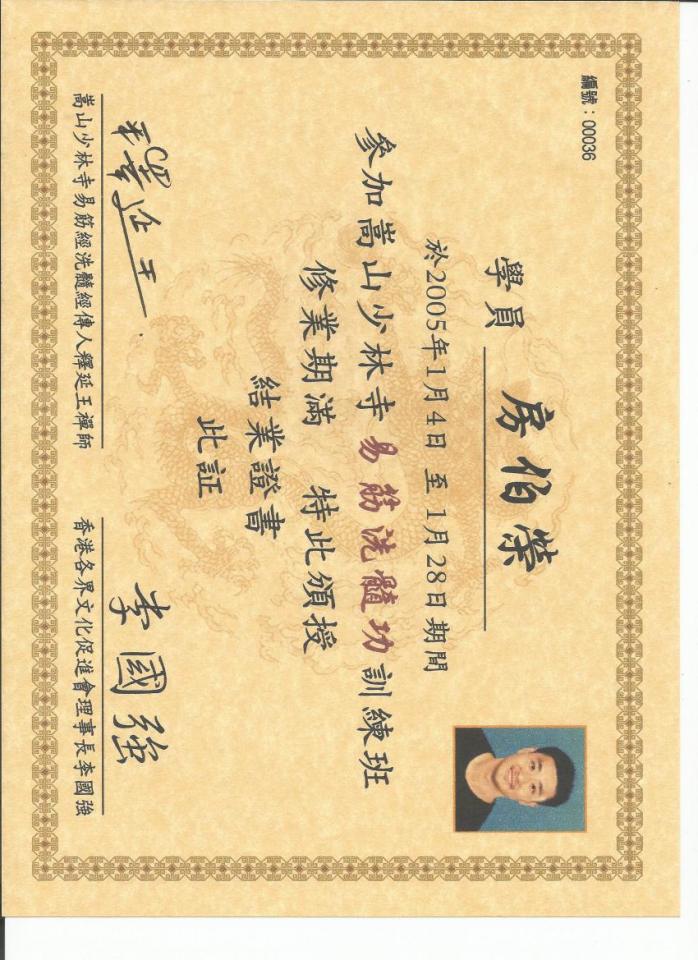 編號：00036
學員 房伯榮
於2005年1月4日 至 1月28日期間
參加嵩山少林寺易筋洗髓功訓練班
修業期滿 特此頒授
結業證書
此証
釋延王
嵩山少林寺易筋經洗髓經傳人釋延王禪師
李國強
香港各界文化促進會理事長李國強